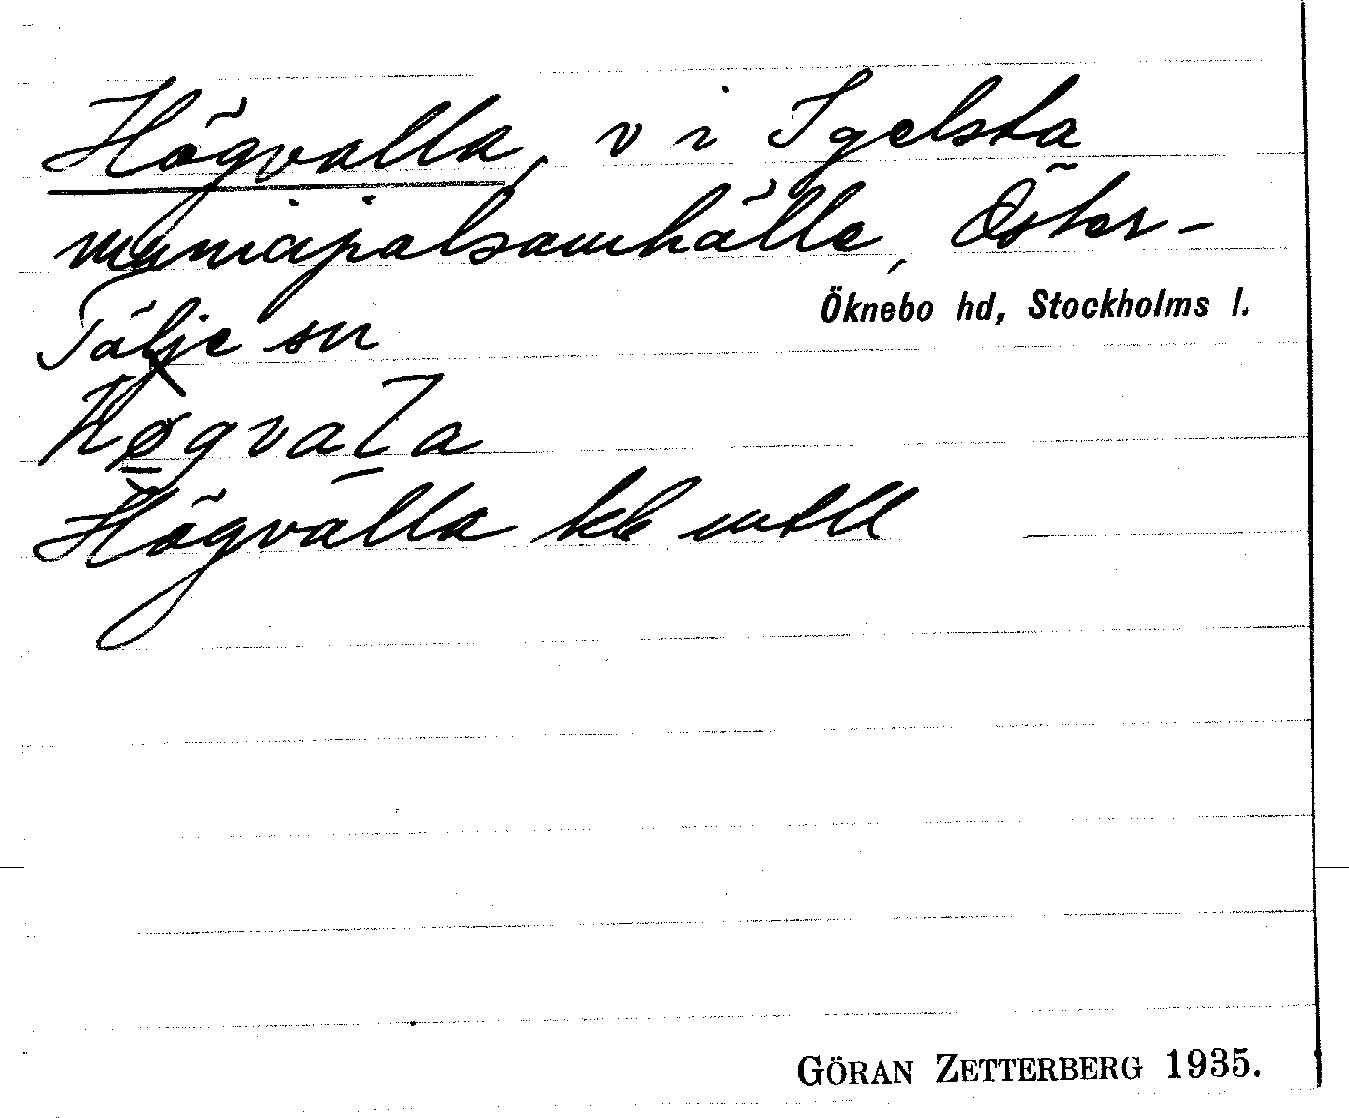 Högvalla, v i Igelsta
municipalsamhälle, Öster-
Tälje sn
Öknebo hd, Stockholms l.
Høgvala
Högvalla kb mtll
GÖRAN ZETTERBERG 1935.